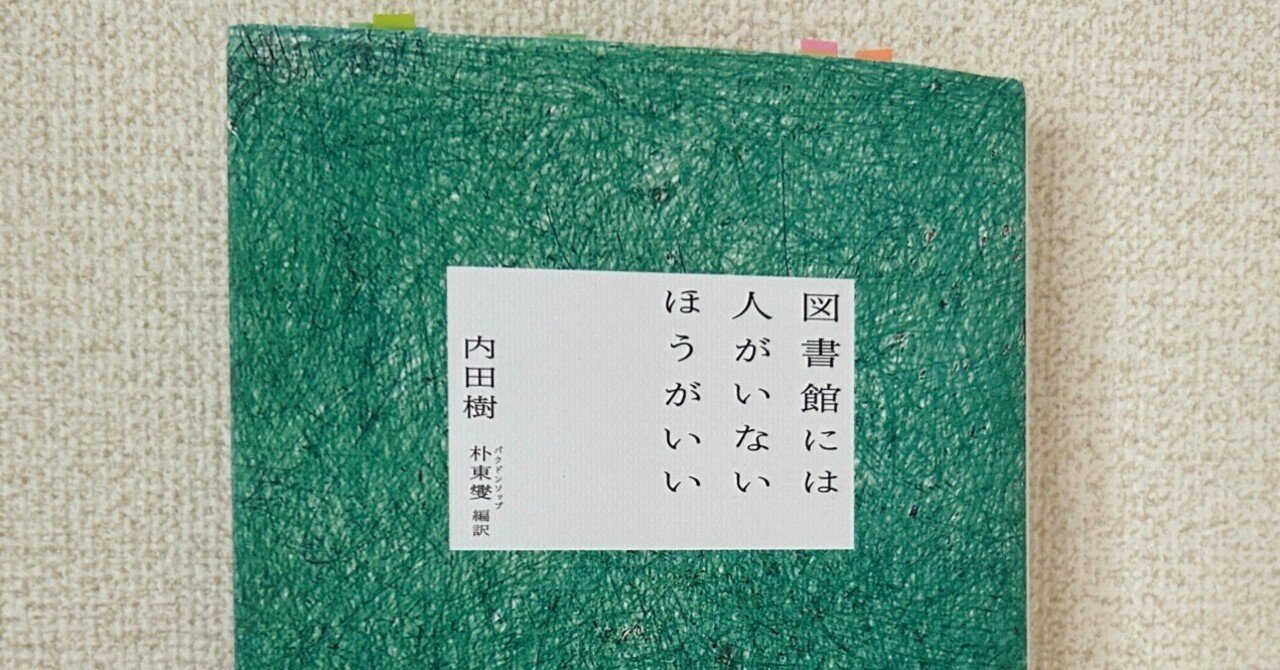 図書館には
人がいない
ほうがいい
内田樹
朴東燮 編訳
パクドンソップ